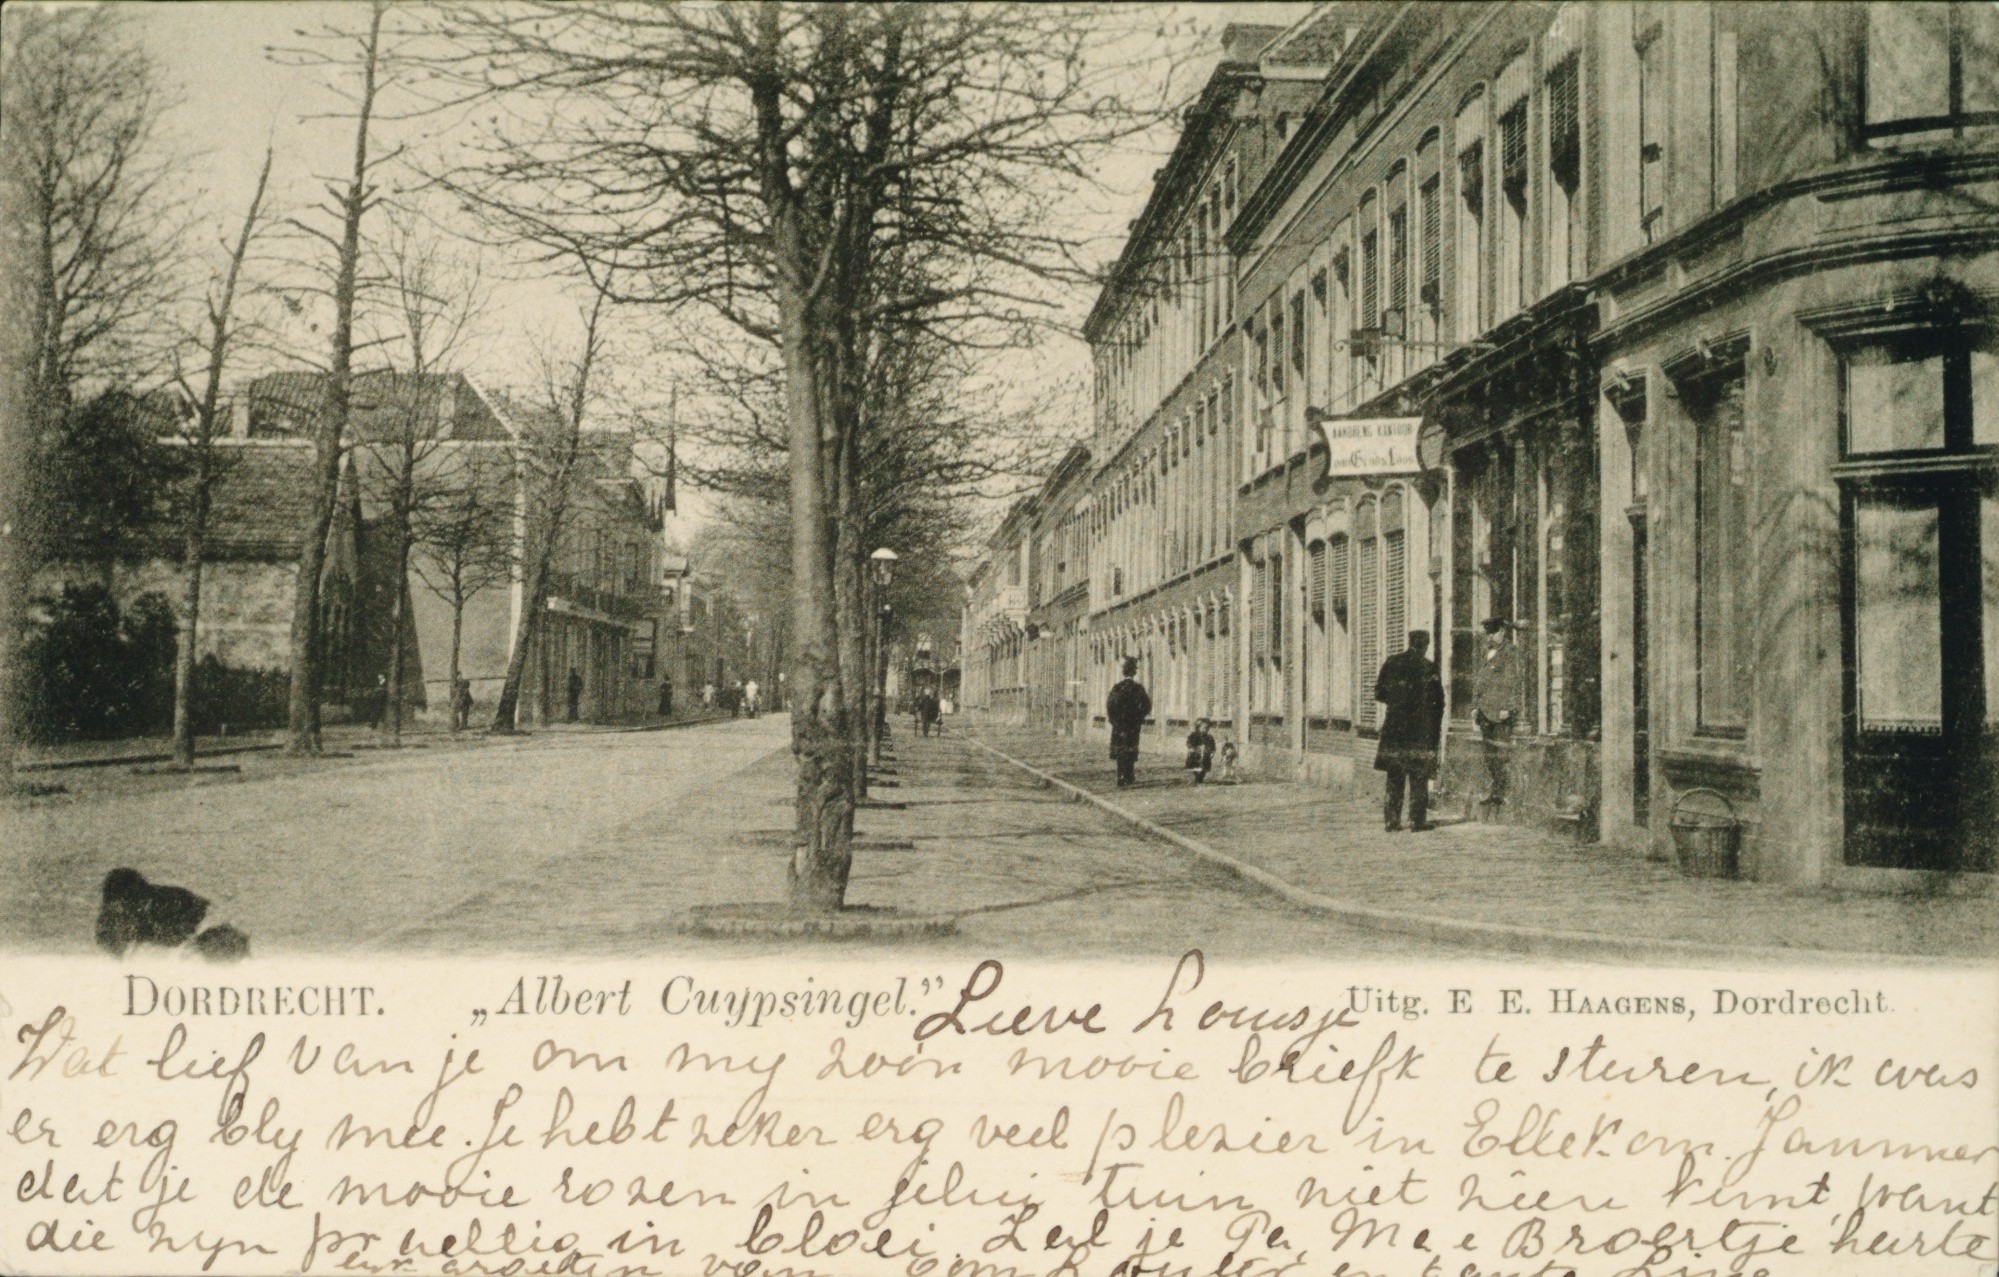 AANDRENG KANTOOR
DORDRECHT. „Albert Cuypsingel.” Uitg. E E. HAAGENS, Dordrecht.
Lieve Lousje
Wat lief van je om my zoo'n mooie briefk te sturen, ik was
er erg bly mee. Je hebt zeker erg veel plezier in Ellekom. Jammer
dat je de mooie rozen in jelui tuin niet zien kunt, want
die zyn prachtig in bloei. Zeal je Pa, Ma, e Broertje harte
groeten van Oom L en tante